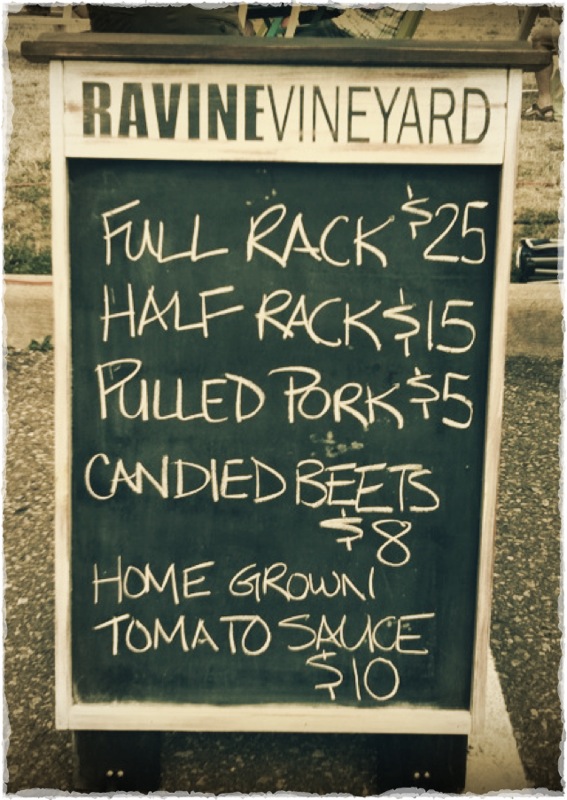 RAVINEVINEYARD
FULL RACK $25
HALF RACK $15
PULLED PORK $5
CANDIED BEETS
$8
HOME GROWN
TOMATO SAUCE
$10